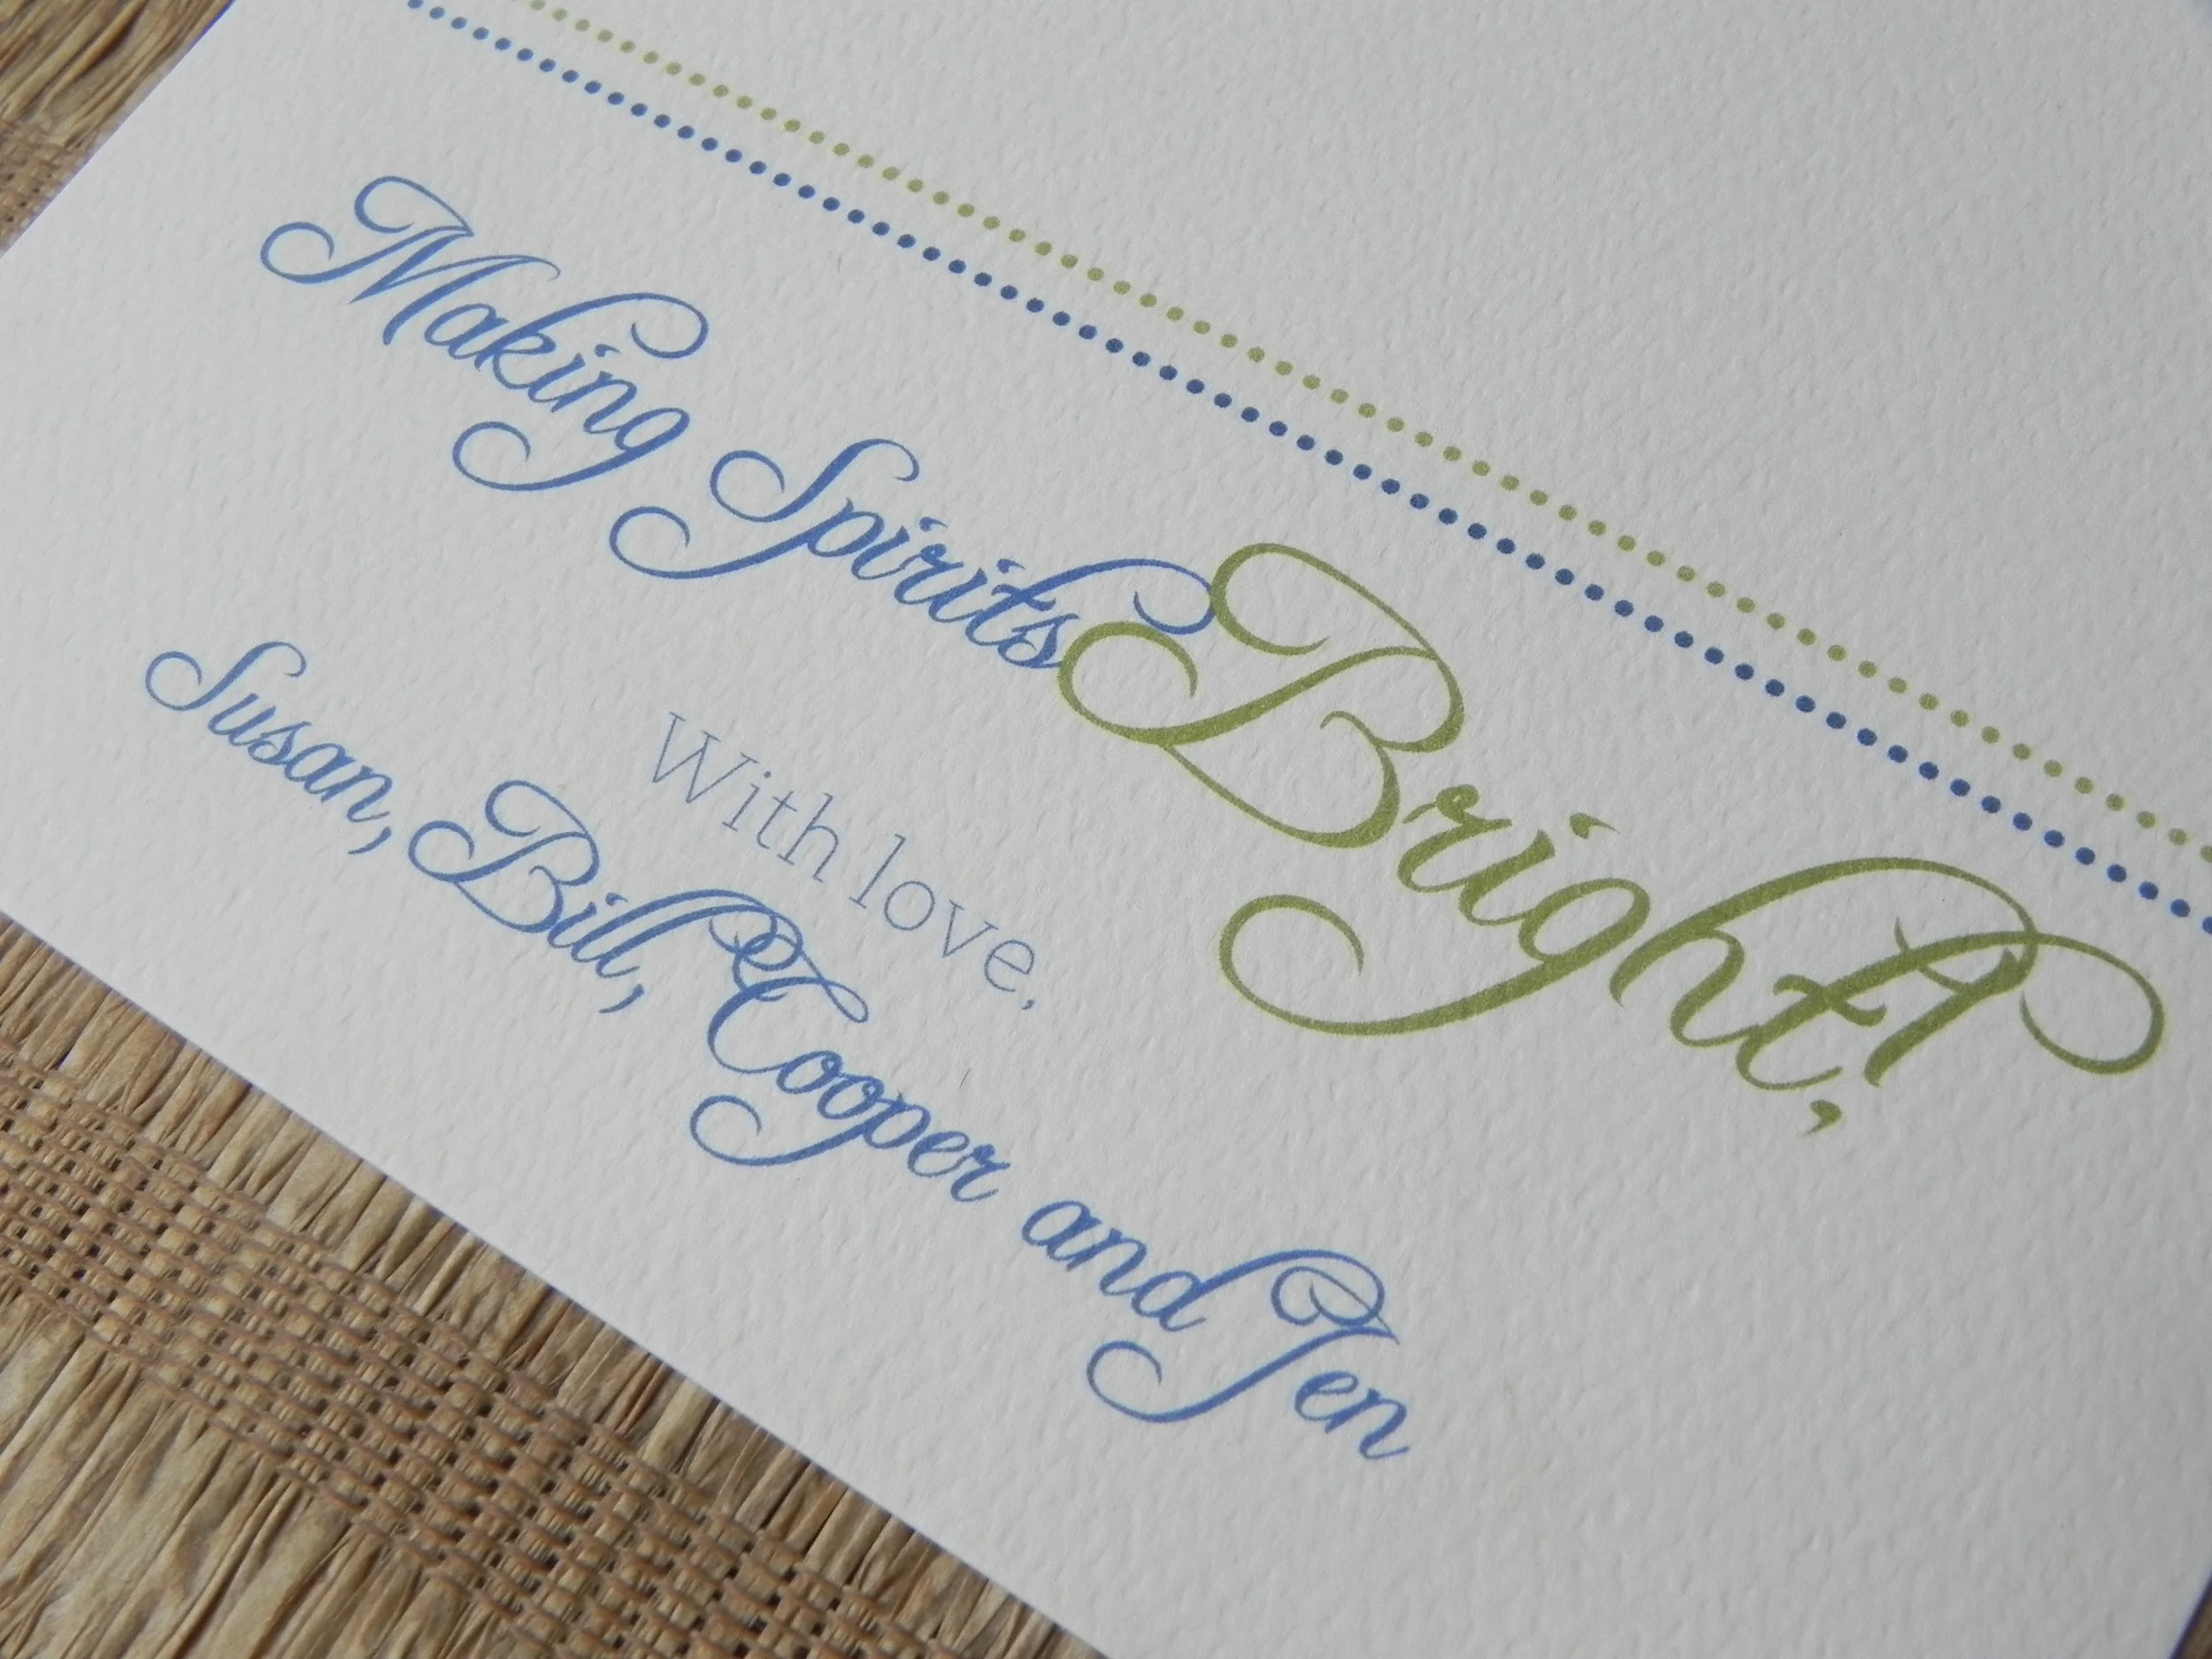 Making Spirits Bright!,
With love,
Susan, Bill, Cooper and Jen